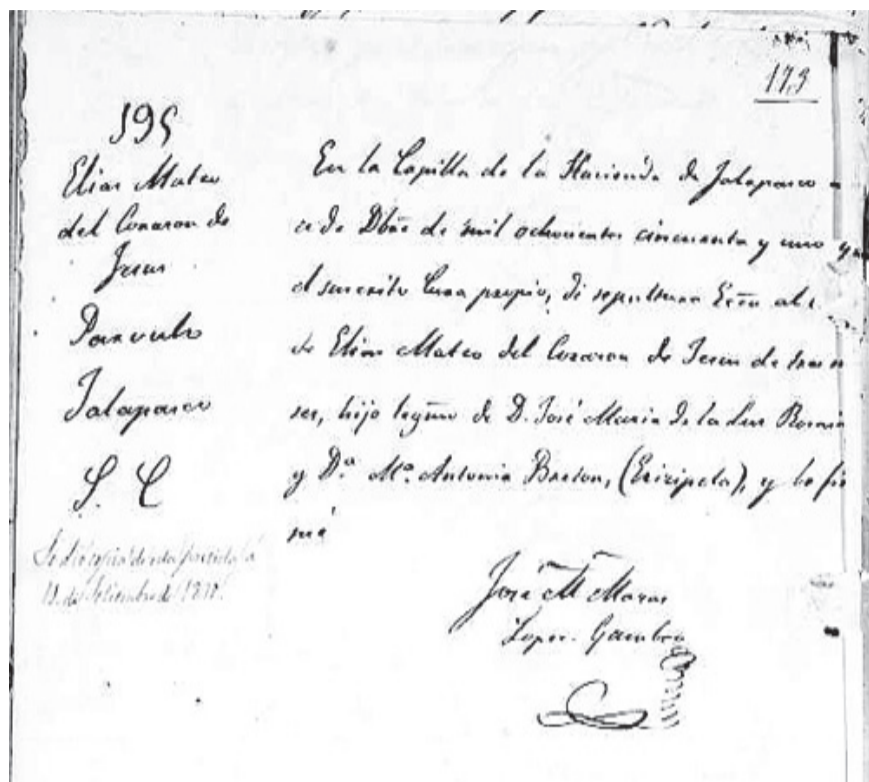 173
195
Elias Mateo
del Corazon de
Jesus
Parvulo
Jalapasco
S. C
Se dió copia de esta partida á
11 de Setiembre de
En la Capilla de la Hacienda de Jalapasco a
ce de Dbre de mil ochocientos cincuenta y uno yo
el suscrito Cura propio, di sepultura Ecca al
de Elias Mateo del Corazon de Jesus de tres
ses, hijo legmo de D. José Maria de la Luz Rosain
y Dª Mª Antonia Breton, (Erizipela), y lo fir
mé
José M Moran
Lopez. Gamboa